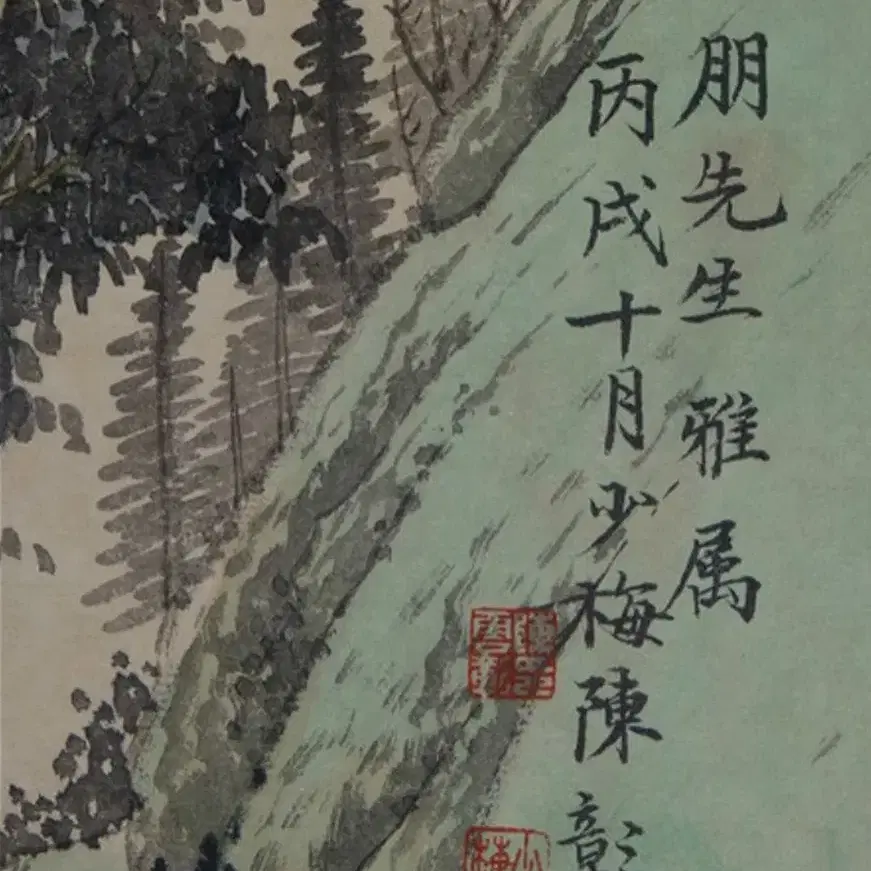 朋先生雅属
丙戌十月少梅陳彰